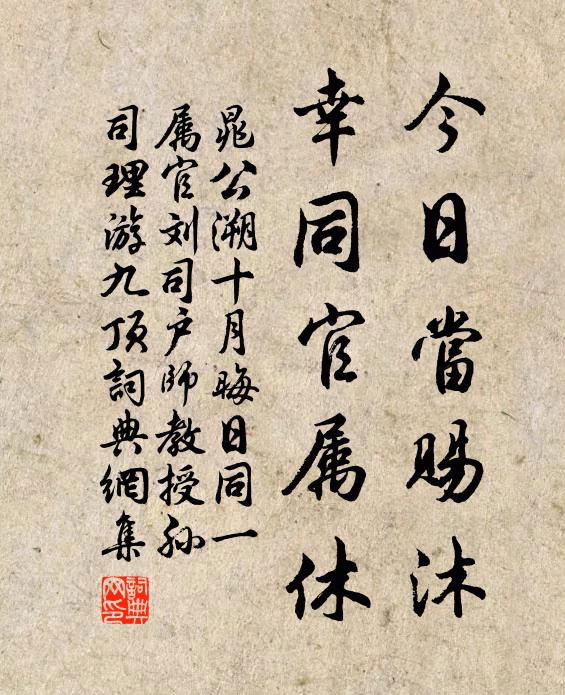 今日當賜沐
幸同官属休
晁公溯十月晦日同一
属官刘司户师教授孙
司理游九顶詞典網集
詞典
网印